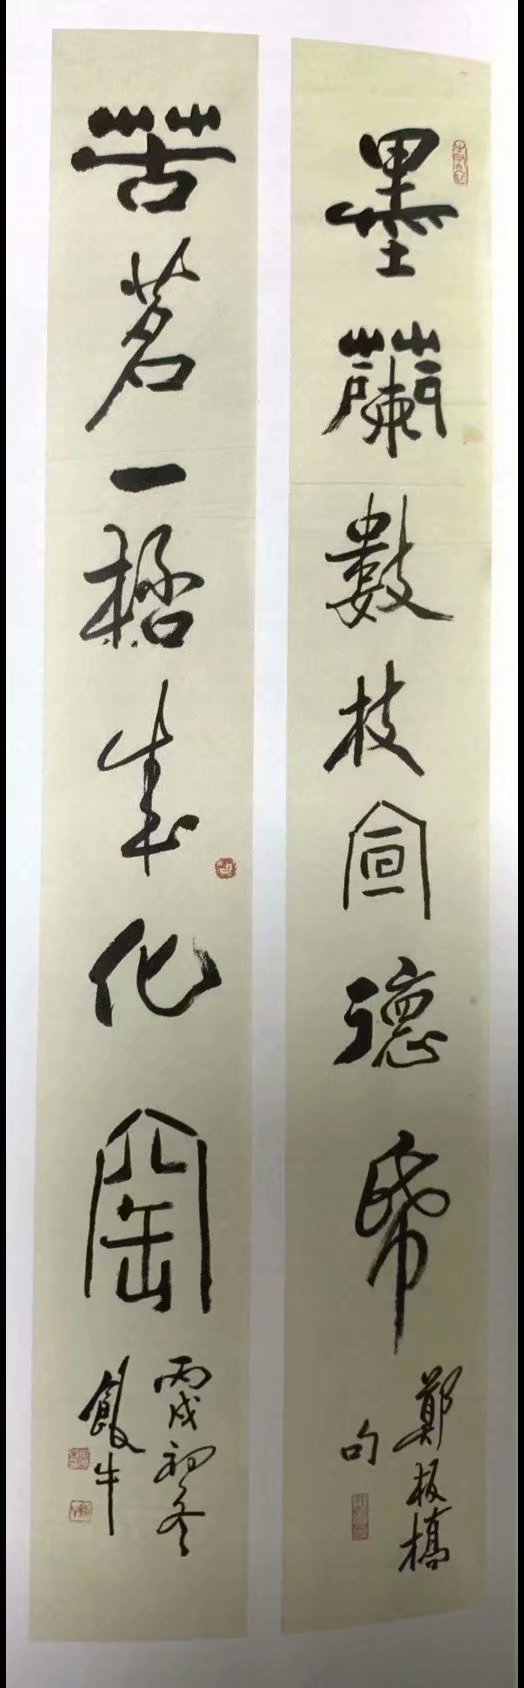 墨蘭數枝宣德帋
鄭板橋
句
苦茗一桮成化窰
丙戌初冬
飯牛